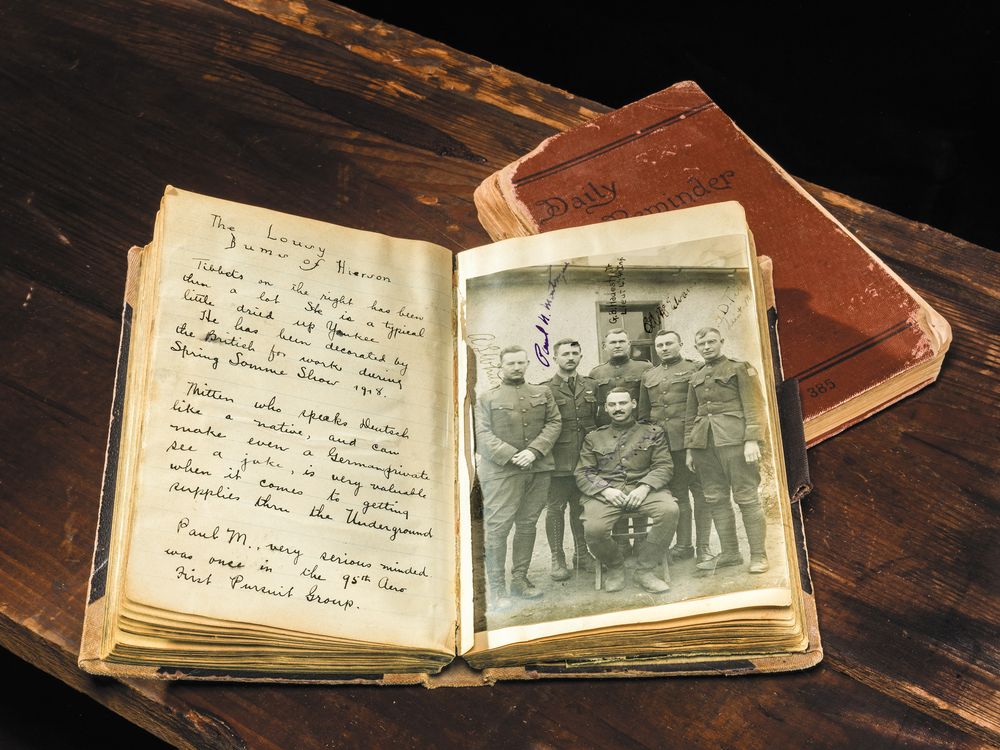 The Lousy
Bums of Hierson
Tibbets on the right has been
thru a lot. He is a typical
little dried up Yankee.
He has been decorated by
the British for work during
Spring Somme Show 1918.
Mitten who speaks Deutsch
like a native, and can
make even a German private
see a joke, is very valuable
when it comes to getting
supplies thru the Underground
Paul M., very serious minded
was once in the 95th Aero
First Pursuit Group.
Paul H.
Daily
Reminder
385